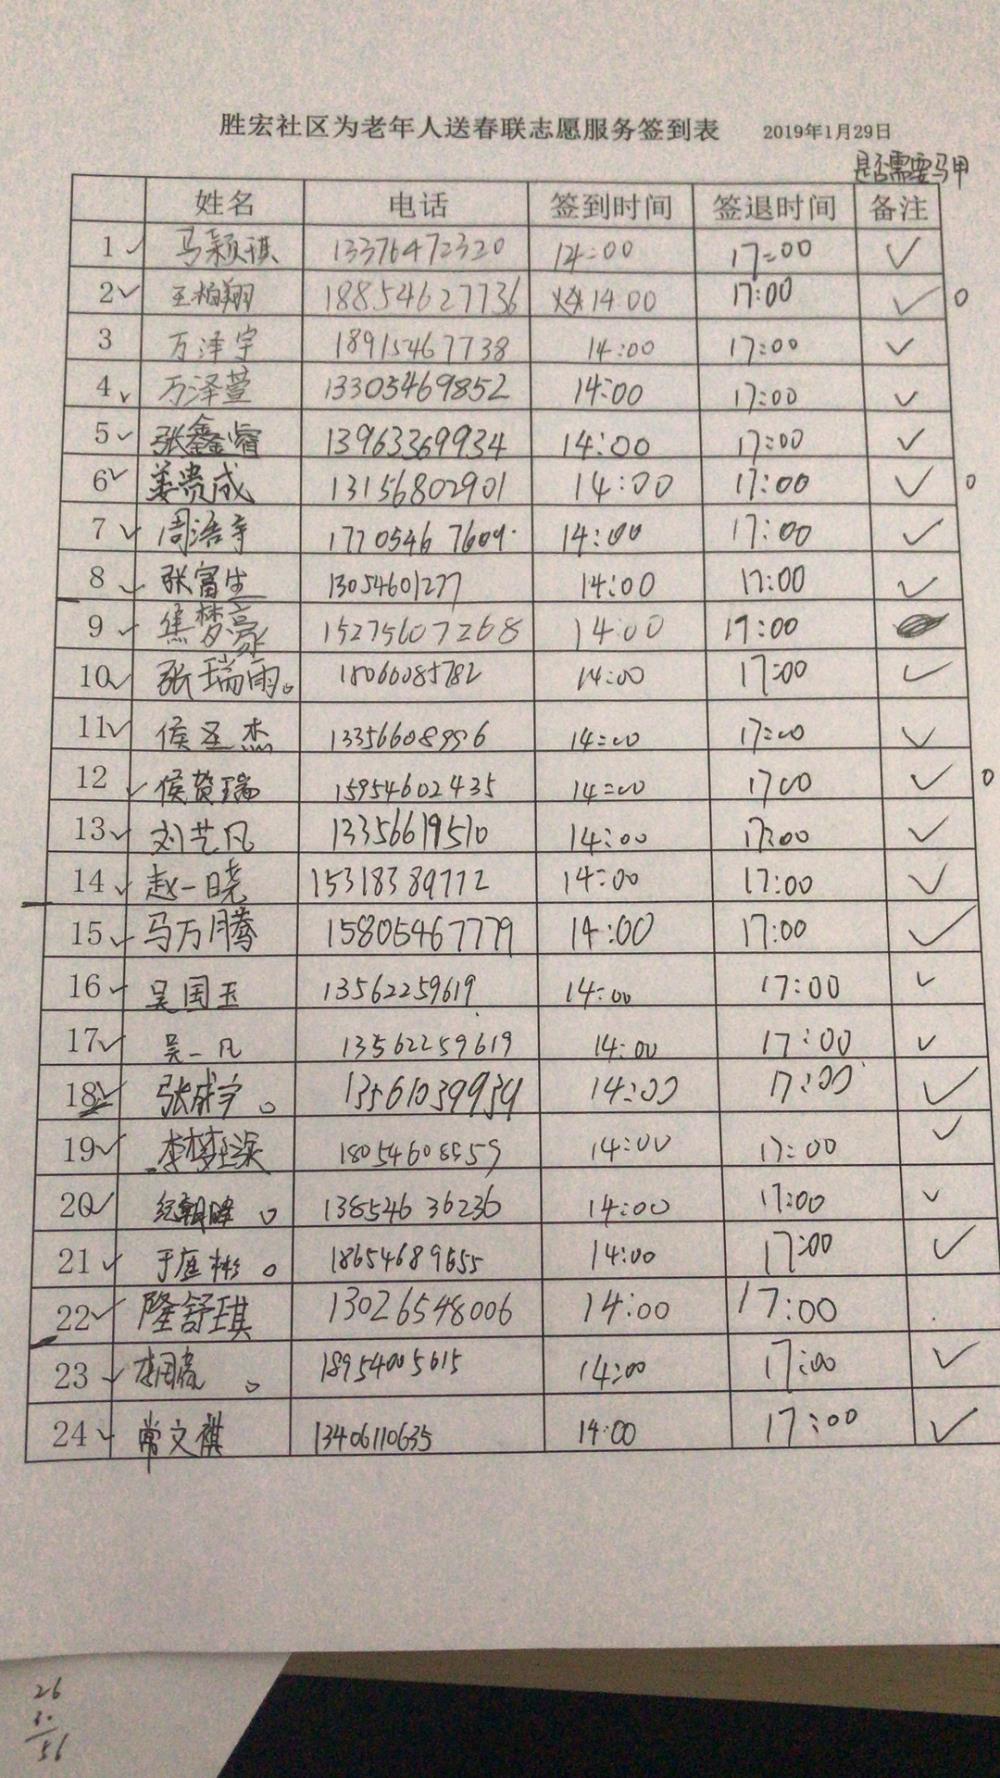 胜宏社区为老年人送春联志愿服务签到表 2019年1月29日
是否需要马甲
姓名 电话 签到时间 签退时间 备注
1 ✓ 马颖祺 13376472320 14:00 17:00 ✓
2 ✓ 王柏翔 18854627736 14:00 17:00 ✓ 0
3 万泽宇 18915467738 14:00 17:00 ✓
4 ✓ 万泽萱 13305469852 14:00 17:00 ✓
5 ✓ 张鑫睿 13963369934 14:00 17:00 ✓
6 ✓ 姜贵成 13156802901 14:00 17:00 ✓ 0
7 ✓ 周浩宇 17705467609 14:00 17:00 ✓
8 ✓ 张富生 13054601277 14:00 17:00 ✓
9 ✓ 焦梦豪 15275607268 14:00 17:00
10 ✓ 张瑞雨。 18066085782 14:00 17:00 ✓
11 ✓ 侯圣杰 13356608996 14:00 17:00 ✓
12 ✓ 侯贺瑞 15954602435 14:00 1700 ✓ 0
13 ✓ 刘艺凡 13356619510 14:00 17:00 ✓
14 ✓ 赵一晓 15318389772 14:00 17:00 ✓
15 ✓ 马万腾 15805467779 14:00 17:00 ✓
16 ✓ 吴国玉 13562259619 14:00 17:00 ✓
17 ✓ 吴一凡 13562259619 14:00 17:00 ✓
18 ✓ 张成宇 。 13561039939 14:00 17:00 ✓
19 ✓ 14:00 17:00 ✓
20 ✓ 13854636236 14:00 17:00 ✓
21 ✓ 于庭彬 。 18654689655 14:00 17:00 ✓
22 ✓ 隆舒琪 13026548006 14:00 17:00
23 ✓ 18954005615 14:00 17:00 ✓
24 ✓ 常文祺 13406110635 14:00 17:00 ✓
26
56